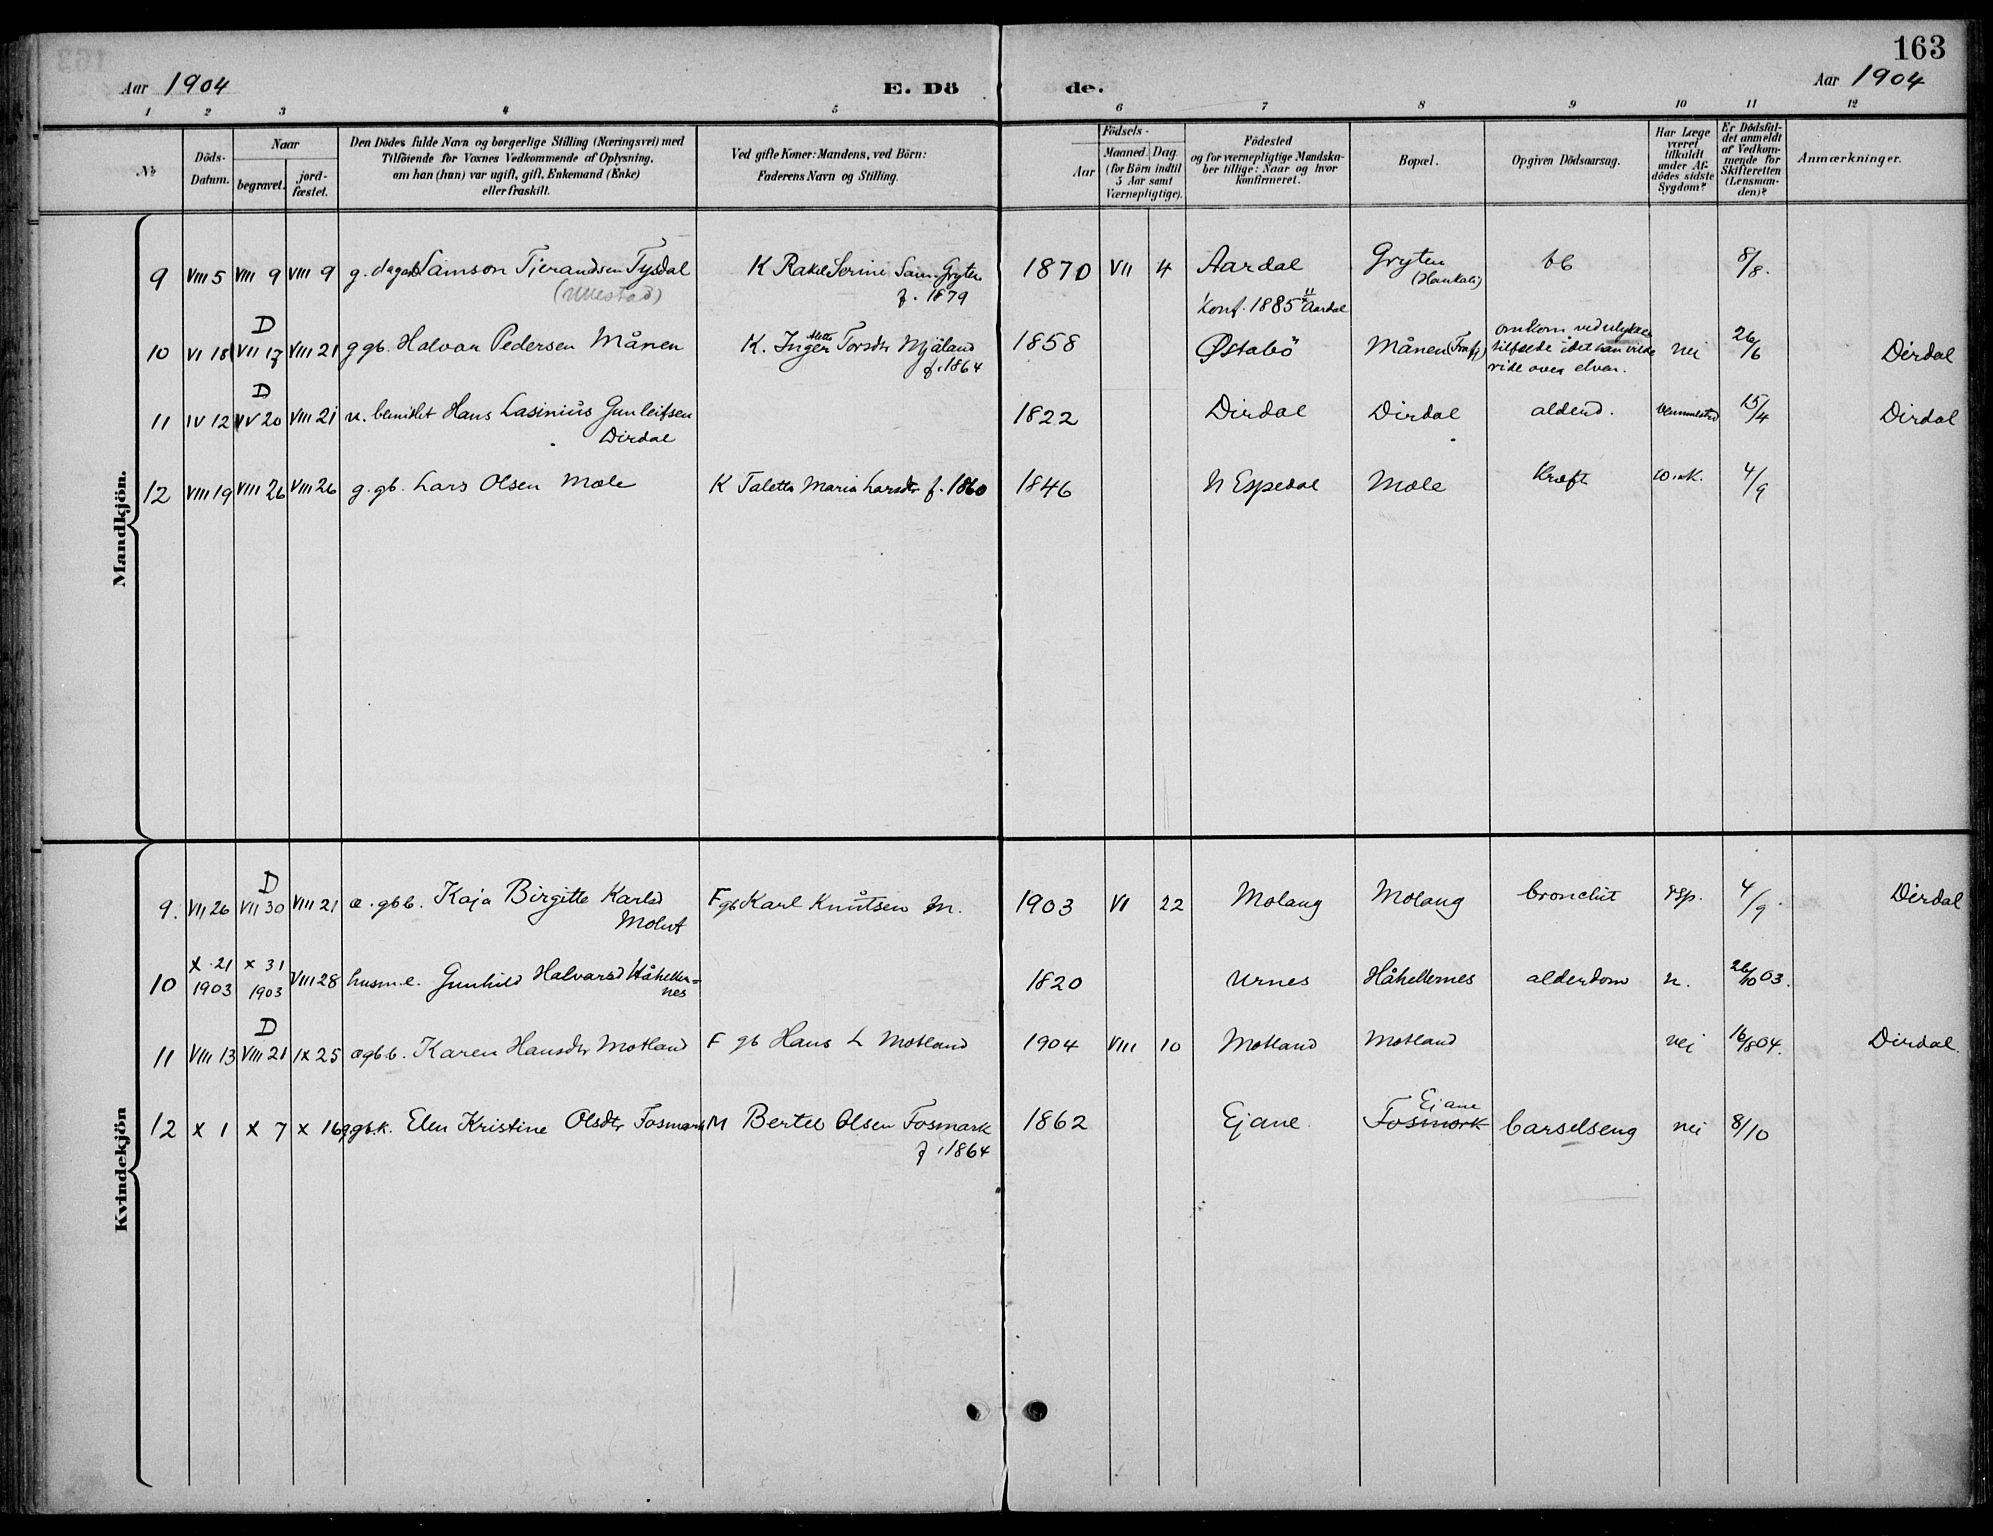 163
Aar 1904 E. Dö de. Aar 1904
1 2 3 4 5 6 7 8 9 10 11 12
No
Döds-
Datum.
Naar
begravet.
jord-
fæstet.
Den Dödes fulde Navn og borgerlige Stilling (Næringsvei) med
Tilföiende for Voxnes Vedkommende af Oplysning,
om han (hun) var ugift, gift, Enkemand (Enke)
eller fraskilt.
Ved gifte Koner: Mandens, ved Börn:
Faderens Navn og Stilling.
Födsels-
Aar
Maaned Dag
(for Börn indtil
5 Aar samt
Værnepligtige).
Födested
og for værnepligtige Mandska-
ber tillige: Naar og hvor
konfirmeret.
Bopæl.
Opgiven Dödsaarsag.
Har Læge
været
tilkaldt
under Af-
dödes sidste
Sygdom?
Er Dödsfal-
det anmeldt
af Vedkom-
mende for
Skifteretten
(Lensman-
den)?
Anmærkninger.
Mandkjön.
9 VIII 5 VIII 9 VIII 9 g. dagarb Samson Tjerandsen Tysdal K Rakel Serine Sam. Gryten 1870 VII 4 Aardal Gryten bb 8/8.
(Ullestad) f. 1879 (Haukali)
Konf. 1885 Aardal
D
10 VI 18 VII 17 VIII 21 g gb. Halvar Pedersen Månen K. Inger Mette Torsdtr Mjåland 1858 Østabö Månen (Frafj) omkom ved ulykkes nei 26/6 Dirdal
f. 1864 tilfælde idet han vilde
ride over elven.
D
11 IV 12 IV 20 VIII 21 u. bemidlet Hans Lasinius Gunleifsen 1822 Dirdal Dirdal alderd. 15/4 Dirdal
Dirdal
12 VIII 19 VIII 26 VIII 26 g. gb. Lars Olsen Mæle K Taletta Maria Larsdtr f. 1860 1846 N Espedal Mæle Kræft 4/9
Kvindekjön
D
9. VII 26 VII 30 VIII 21 æ. gbb. Kaja Birgitte Karlsd F gb Karl Knutsen M. 1903 VI 22 Molaug Molaug bronchit rsp. 4/9. Dirdal
X 21 X 31
10 1903 1903 VIII 28 husm.e. Gunhild Halvarsd Håheller= 1820 Urnes Håhellernes alderdom n. 26/10 03.
nes
D
11 VIII 13 VIII 21 IX 25 ægbb. Karen Hansdtr Motland F gb Hans L Motland 1904 VIII 10 Motland Motland nei 16/8 04. Dirdal.
Ejane
12 X 1 X 7 X 16 g.gb.k. Elen Kristine Olsdtr Fosmark M Bertel Olsen Fosmark 1862 Ejane. Fosmark barselseng nei 8/10
f. 1864